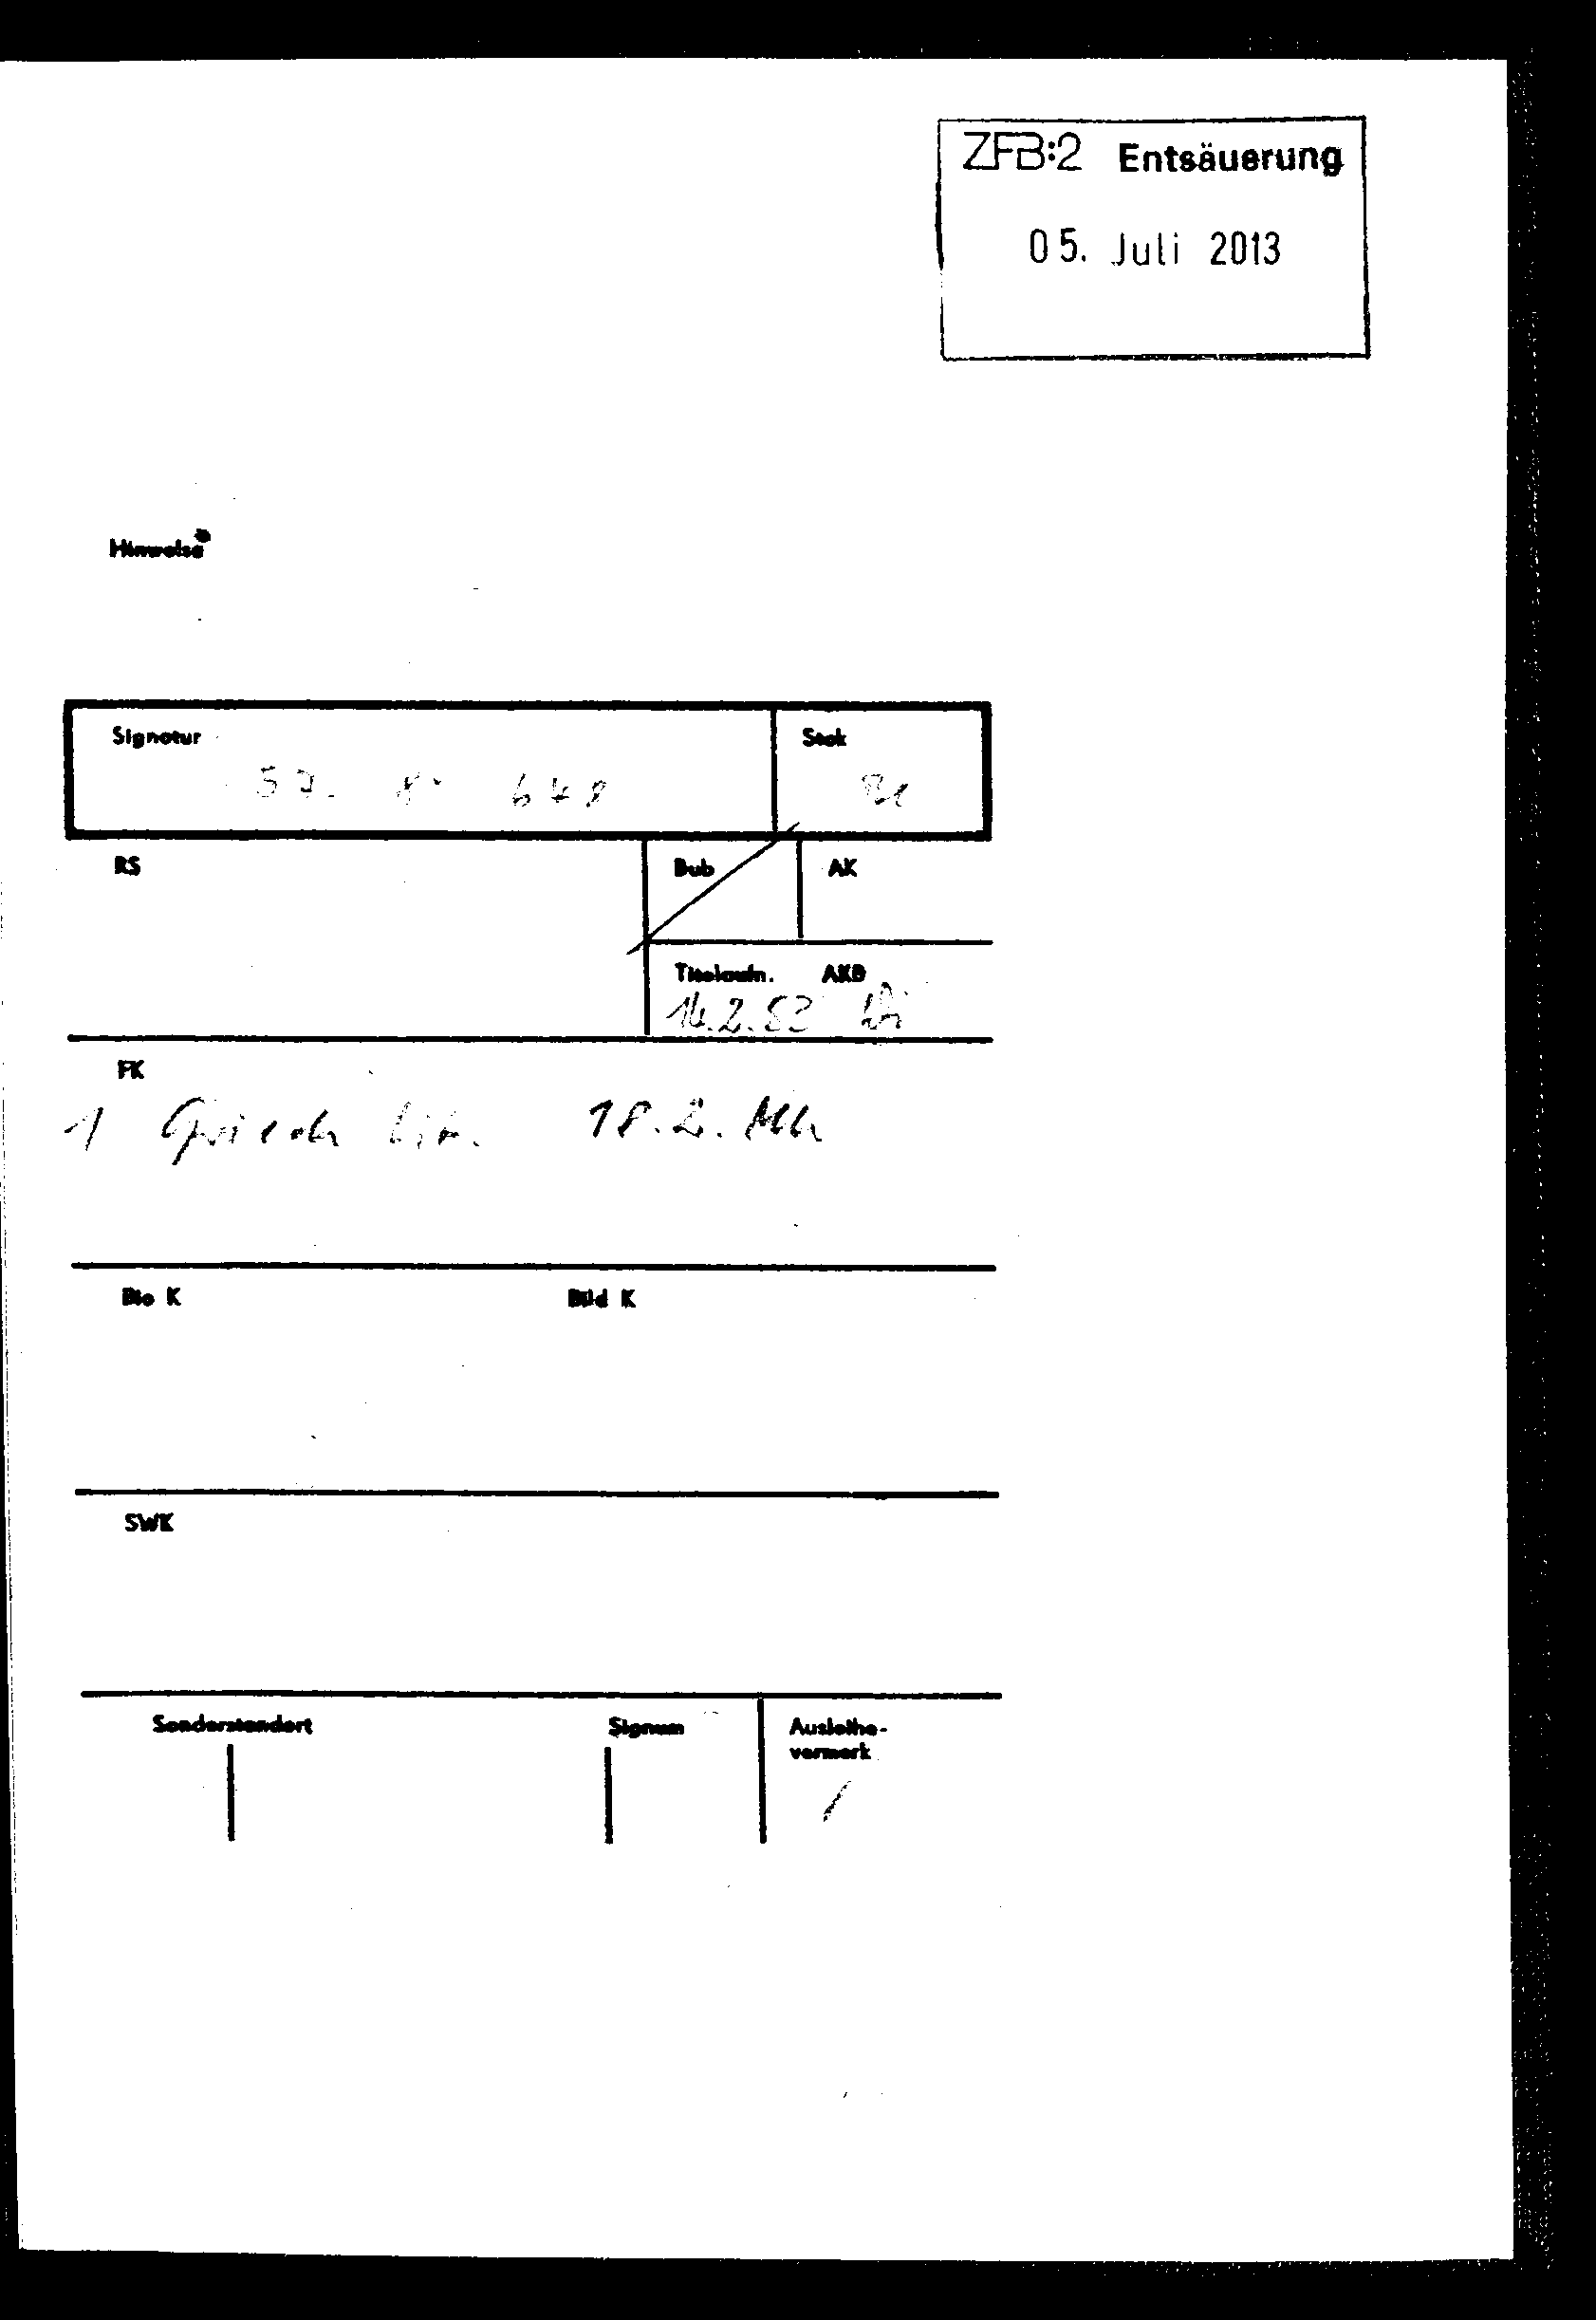 ZFB:2 Entsäuerung
05. Juli 2013
Hinweise*
Signatur Stok
57. 8° 648
RS Bub AK
Titelaufn. AKB
14.2.83
FK
1 Griech. Lit. 18.2.
Bio K Bild K
SWK
Sonderstandort Signum Ausleihe-
vermerk